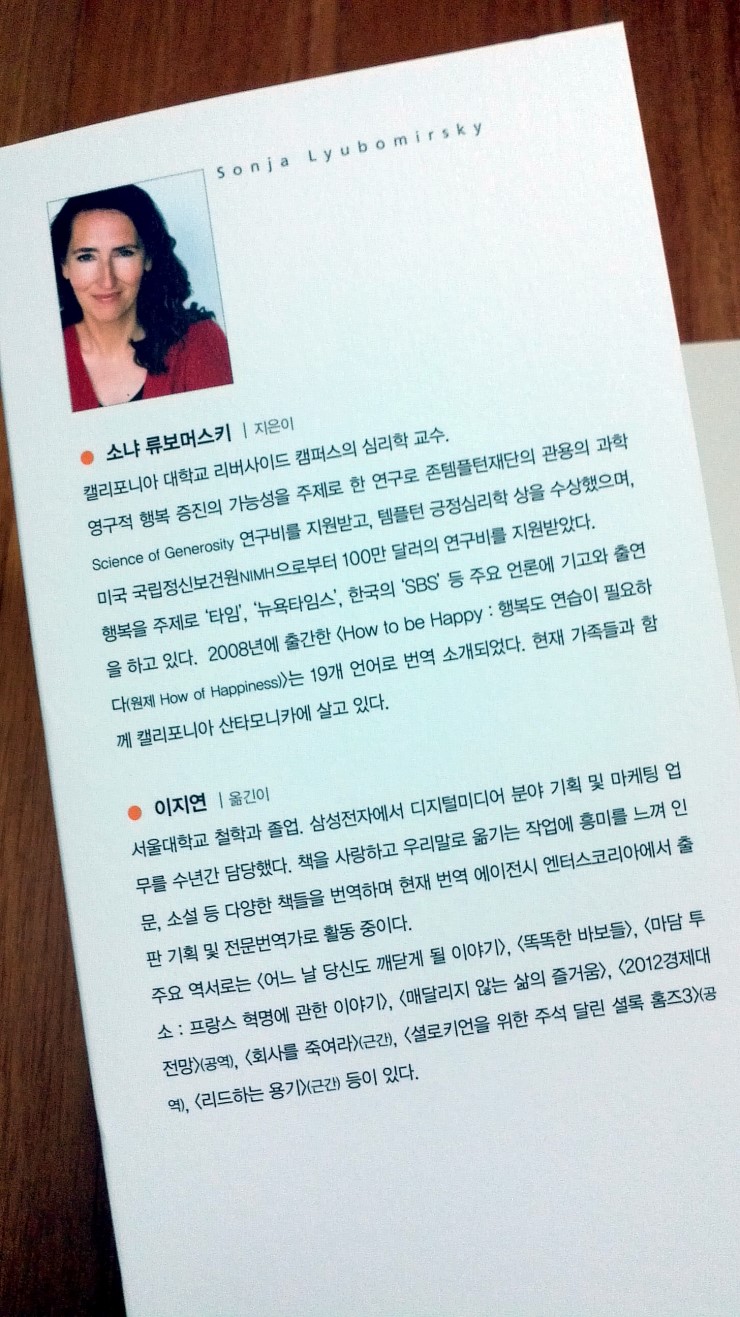 Sonja Lyubomirsky
소냐 류보머스키 | 지은이
캘리포니아 대학교 리버사이드 캠퍼스의 심리학 교수.
영구적 행복 증진의 가능성을 주제로 한 연구로 존템플턴재단의 관용의 과학
Science of Generosity 연구비를 지원받고, 템플턴 긍정심리학 상을 수상했으며,
미국 국립정신보건원NIMH으로부터 100만 달러의 연구비를 지원받았다.
행복을 주제로 '타임', '뉴욕타임스', 한국의 'SBS' 등 주요 언론에 기고와 출연
을 하고 있다. 2008년에 출간한 〈How to be Happy : 행복도 연습이 필요하
다(원제 How of Happiness)〉는 19개 언어로 번역 소개되었다. 현재 가족들과 함
께 캘리포니아 산타모니카에 살고 있다.
이지연 | 옮긴이
서울대학교 철학과 졸업. 삼성전자에서 디지털미디어 분야 기획 및 마케팅 업
무를 수년간 담당했다. 책을 사랑하고 우리말로 옮기는 작업에 흥미를 느껴 인
문, 소설 등 다양한 책들을 번역하며 현재 번역 에이전시 엔터스코리아에서 출
판 기획 및 전문번역가로 활동 중이다.
주요 역서로는 〈어느 날 당신도 깨닫게 될 이야기〉, 〈똑똑한 바보들〉, 〈마담 투
소 : 프랑스 혁명에 관한 이야기〉, 〈매달리지 않는 삶의 즐거움〉, 〈2012경제대
전망〉(공역), 〈회사를 죽여라〉(근간), 〈셜로키언을 위한 주석 달린 셜록 홈즈3〉(공
역), 〈리드하는 용기〉(근간) 등이 있다.